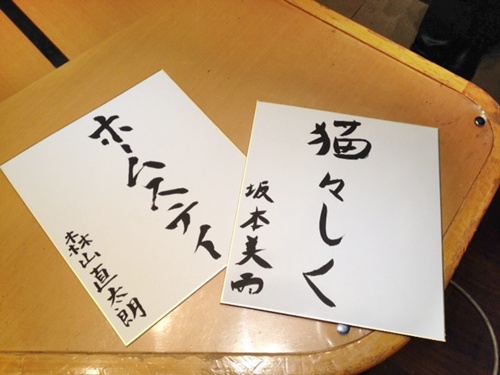 ホームステイ
森山直太朗
猫々しく
坂本美雨